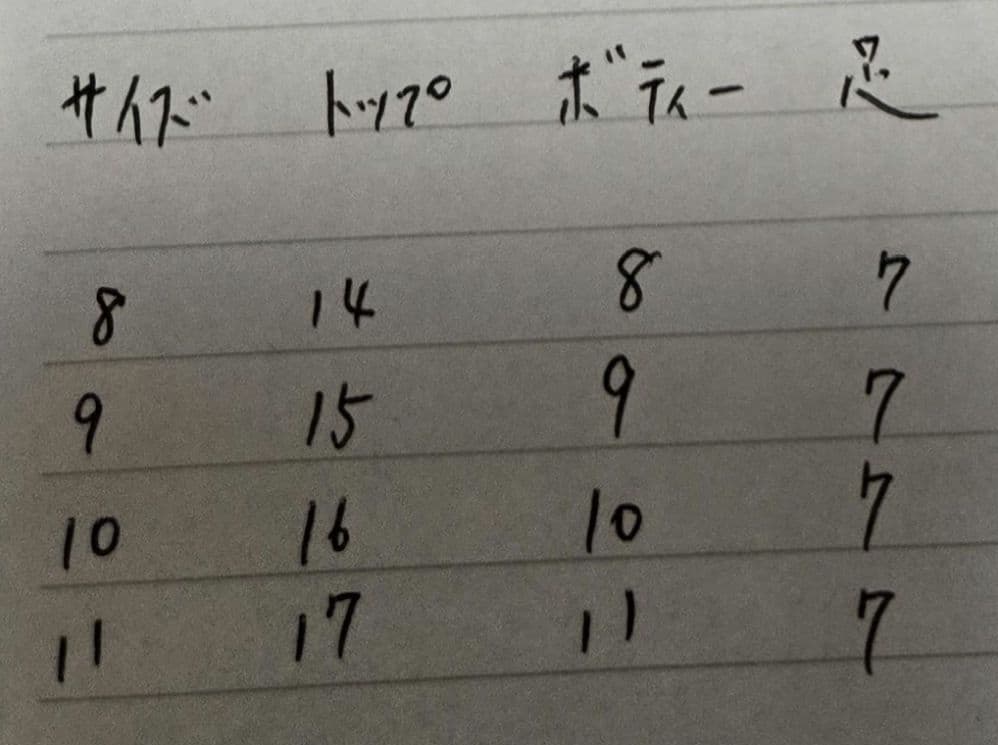 サイズ トップ ボディー 足
8 14 8 7
9 15 9 7
10 16 10 7
11 17 11 7